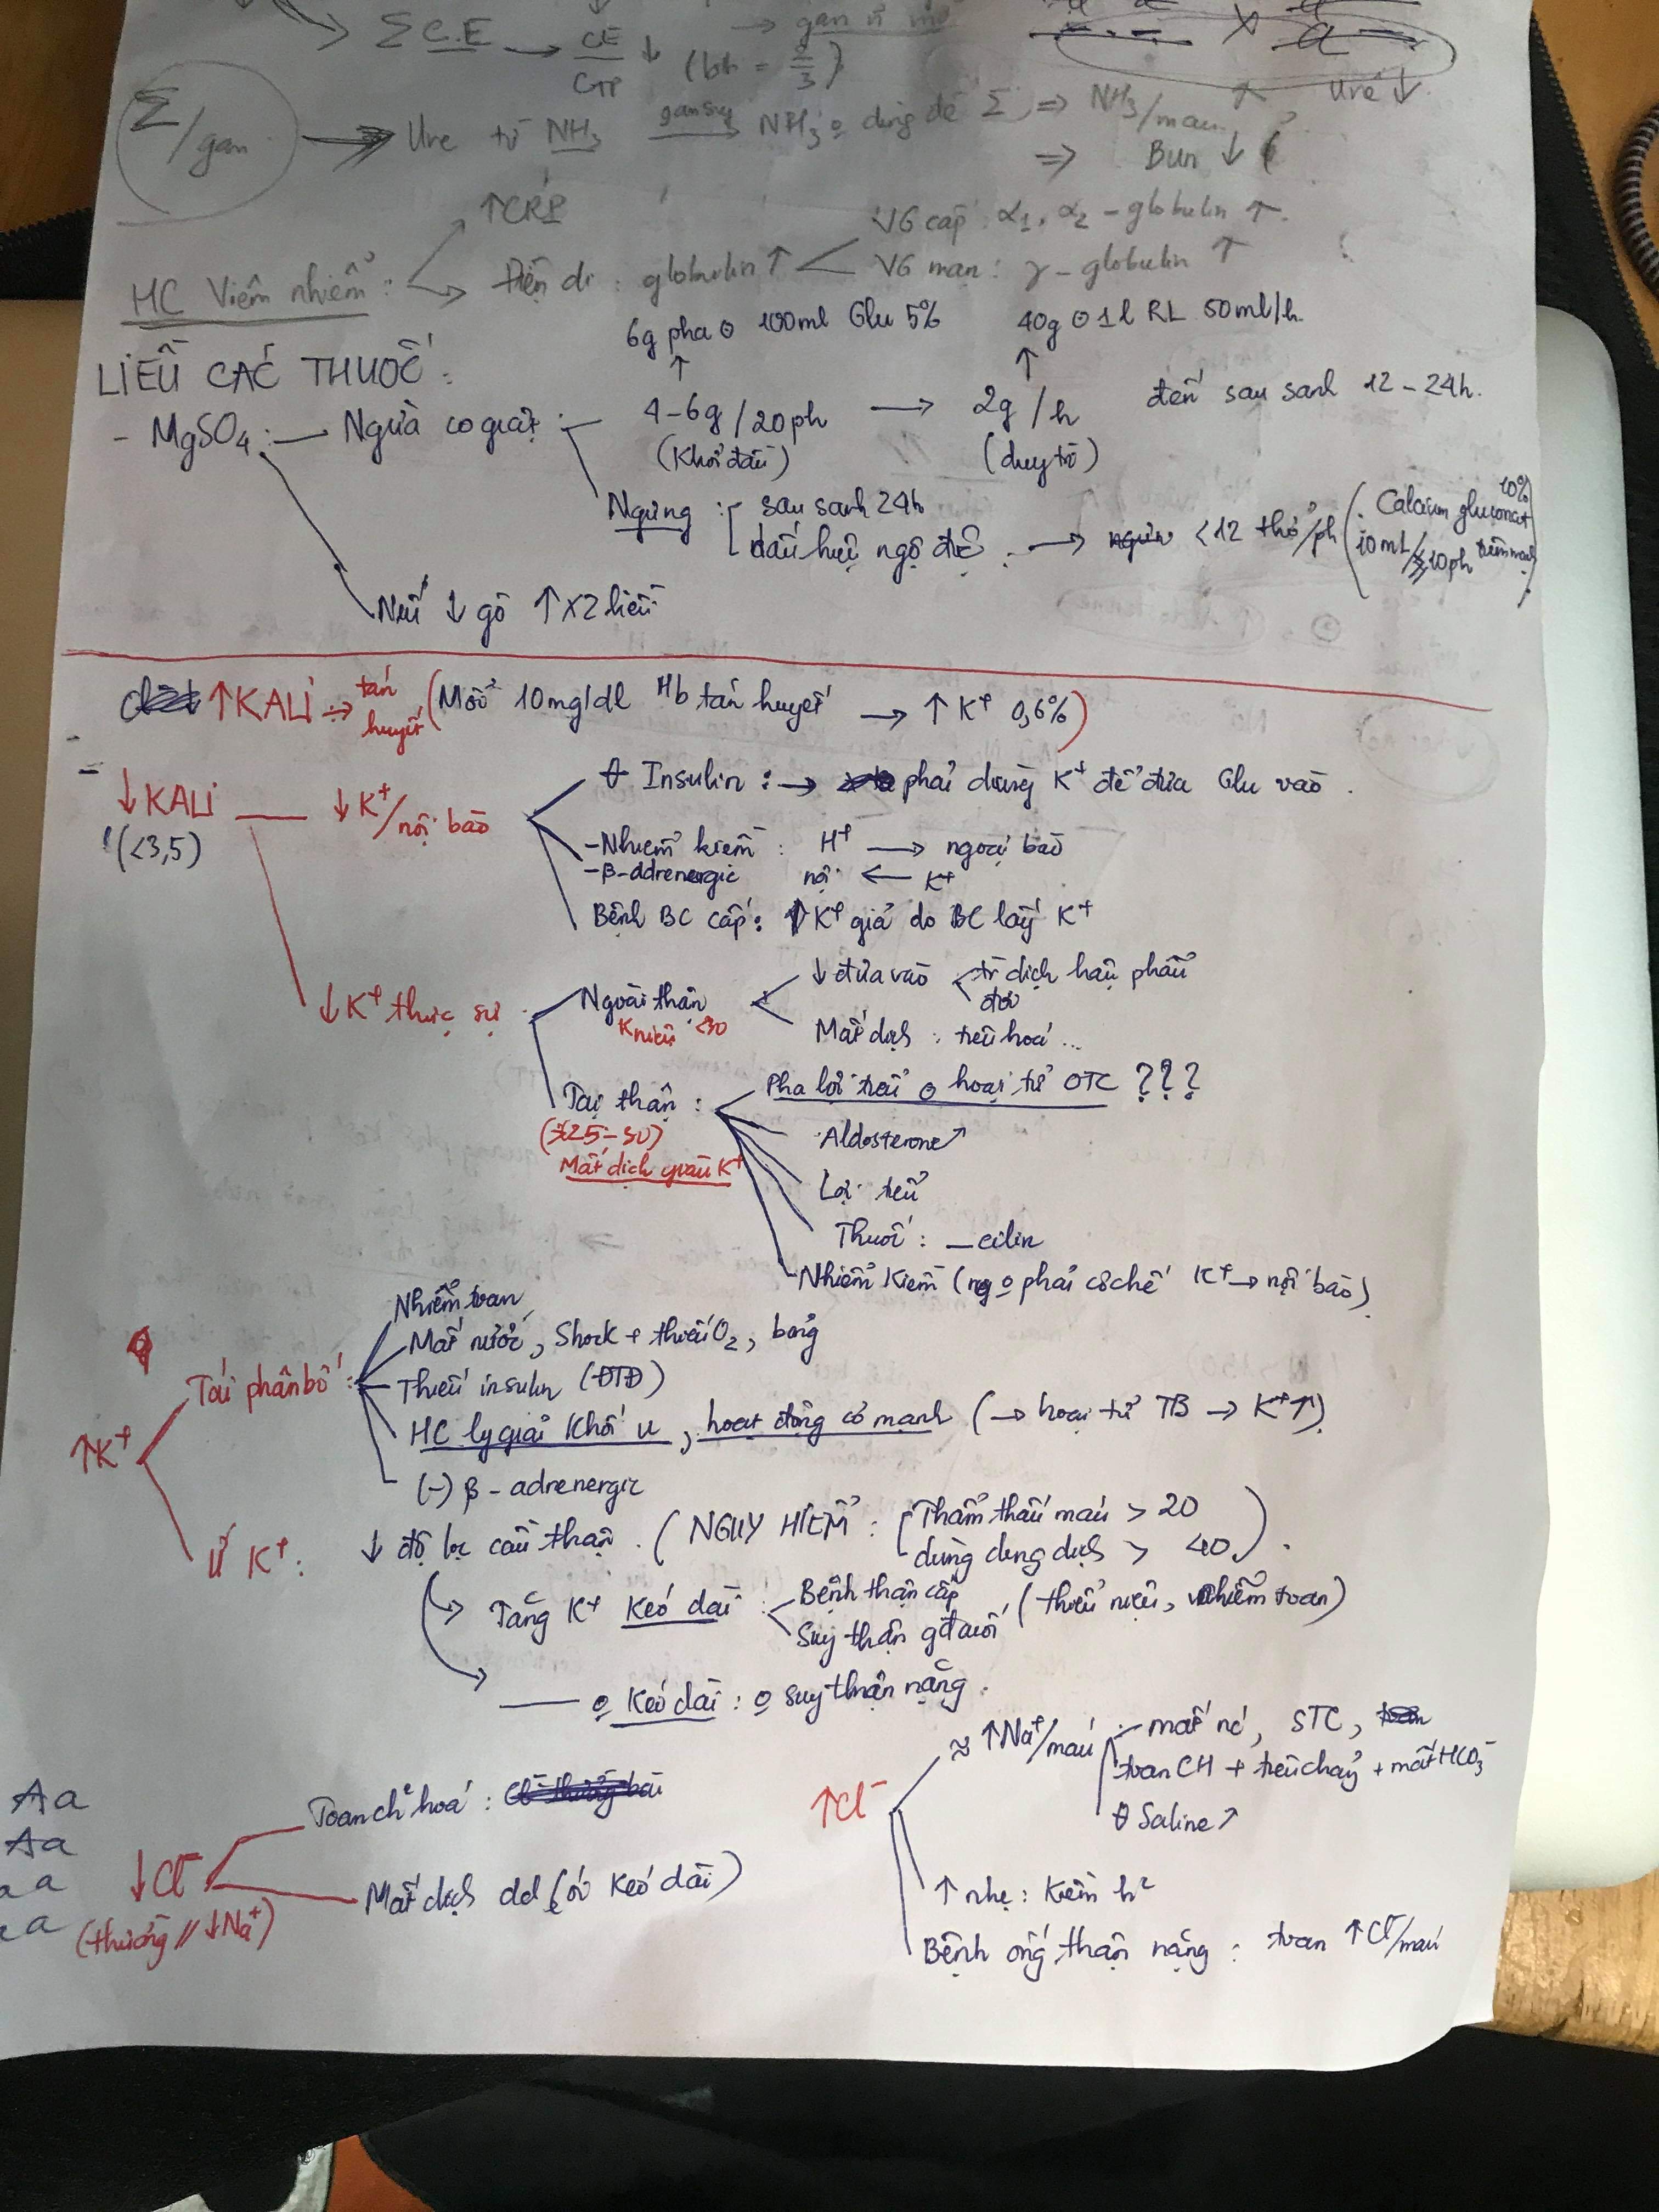 Σ C.E → CE/CTP ↓ (bt = 2/3) → gan
Σ/gan → Ure từ NH3 gan suy NH3 o dùng để Σ ⇒ NH3/máu ↑ Ure ↓
⇒ Bun ↓
↑CRP
HC Viêm nhiễm : Điện di : globulin ↑ < VG cấp : α1, α2 - globulin ↑.
VG mạn : γ - globulin ↑
6g pha 100ml Glu 5%
40g 1l RL 50ml/h.
LIỀU CÁC THUỐC :
- MgSO4 : Ngừa co giật : 4-6g/20ph → 2g/h đến sau sanh 12-24h.
(Khởi đầu) (duy trì)
Ngưng : sau sanh 24h
dấu hiệu ngộ độc . → <12 thở/ph (Calcium gluconat 10%
10ml/10ph tiêm mạch)
Nếu ↓ gò ↑ x2 liều
↑KALI → tán huyết (Mỗi 10mg/dl Hb tán huyết → ↑ K+ 0,6%)
↓KALI (<3,5)
↓K+/nội bào
θ Insulin : → phải dùng K+ để đưa Glu vào .
- Nhiễm kiềm : H+ → ngoại bào
- β-adrenergic nội ← K+
Bệnh BC cấp : K+ giả do BC lấy K+
↓K+ thực sự
Ngoài thận
K niệu <30
↓ đưa vào < tr dịch hậu phẫu
đói
Mất dịch : tiêu hoá ...
Tại thận :
(25-30)
Mất dịch giàu K+
Pha lợi tiểu hoại tử OTC ???
Aldosterone ↗
Lợi tiểu
Thuốc : _cilin
Nhiễm Kiềm (ng o phải cơ chế K+ → nội bào)
↑K+
Tái phân bố :
Nhiễm toan
Mất nước, Shock + thiếu O2, bỏng
Thiếu insulin (ĐTĐ)
HC ly giải Khối u , hoạt động cơ mạnh (→ hoại tử TB → K+↑)
(-) β - adrenergic
Ứ K+ : ↓ độ lọc cầu thận . (NGUY HIỂM : Thẩm thấu máu > 20
dùng dung dịch > 40) .
Tăng K+ Kéo dài : Bệnh thận cấp
Suy thận gđ cuối (thiểu niệu, nhiễm toan)
—— o Kéo dài : o suy thận nặng .
↓Cl-
(thường // ↓Na+)
Toan ch hoá :
Mất dịch dd (ói Kéo dài)
↑Cl-
≈ ↑Na+/máu : mất nc, STC,
toan CH + tiêu chảy + mất HCO3-
θ Saline ↗
↑ nhẹ : Kiềm h2
Bệnh ống thận nặng : toan ↑Cl-/máu
Aa
Aa
aa
a